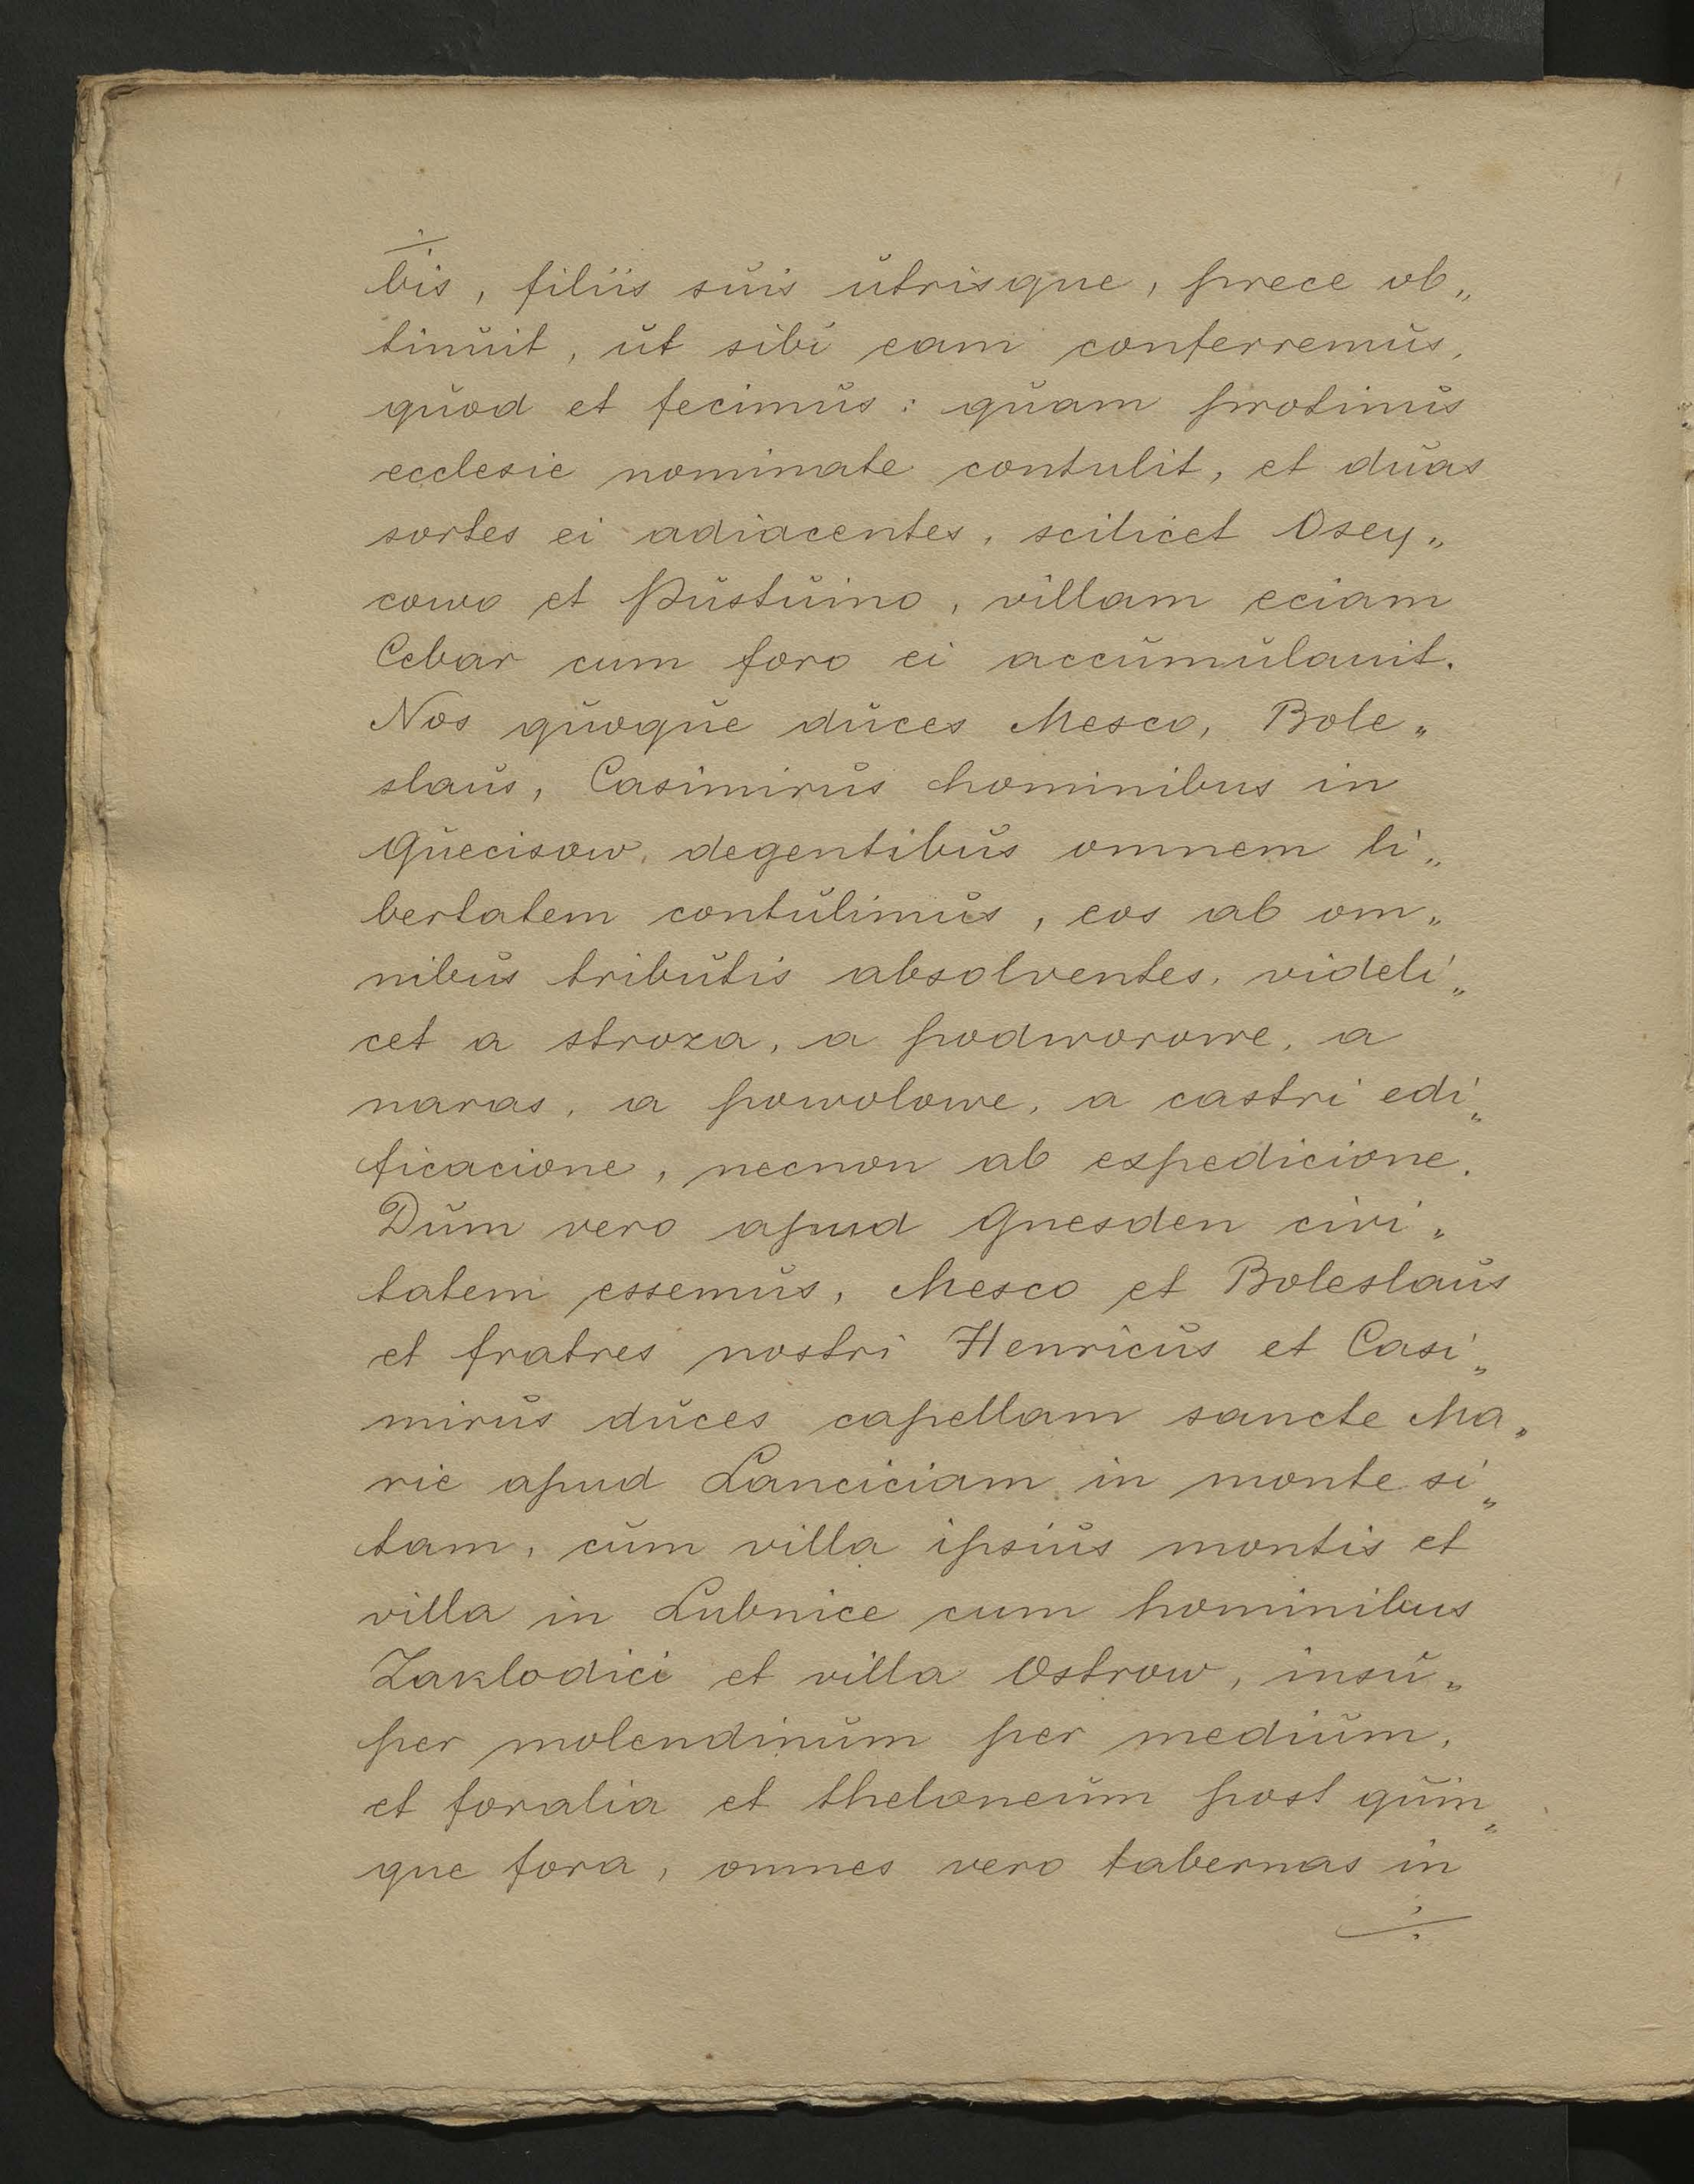 bis, filiis suis utrisque, prece ob„
tinuit, ut sibi eam conferremus,
quod et fecimus: quam protinus
ecclesie nominate contulit, et duas
sortes ei adiacentes, scilicet Osey„
cowo et Pustuino, villam eciam
Cebar cum foro ei accumulauit.
Nos quoque duces Mesco, Bole„
slaus, Casimirus hominibus in
Quecisow, degentibus omnem li„
bertatem contulimus, eos ab om„
nibus tributis absolventes, videli„
cet a stroza, a podworowe, a
naras, a powolowe, a castri edi„
ficacione, necnon ab expedicione.
Dum vero apud Gnesden civi„
tatem essemus, Mesco et Boleslaus
et fratres nostri Henricus et Casi„
mirus duces capellam sancte Ma„
rie apud Lanciciam in monte si„
tam, cum villa ipsius montis et
villa in Lubnice cum hominibus
Zaklodici et villa Ostrow, insu„
per molendinum per medium,
et foralia et theloneum post quin„
que fora, omnes vero tabernas in